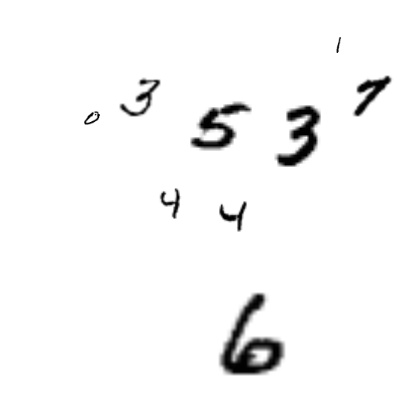 1
0 3 5 3 7
4 4
6